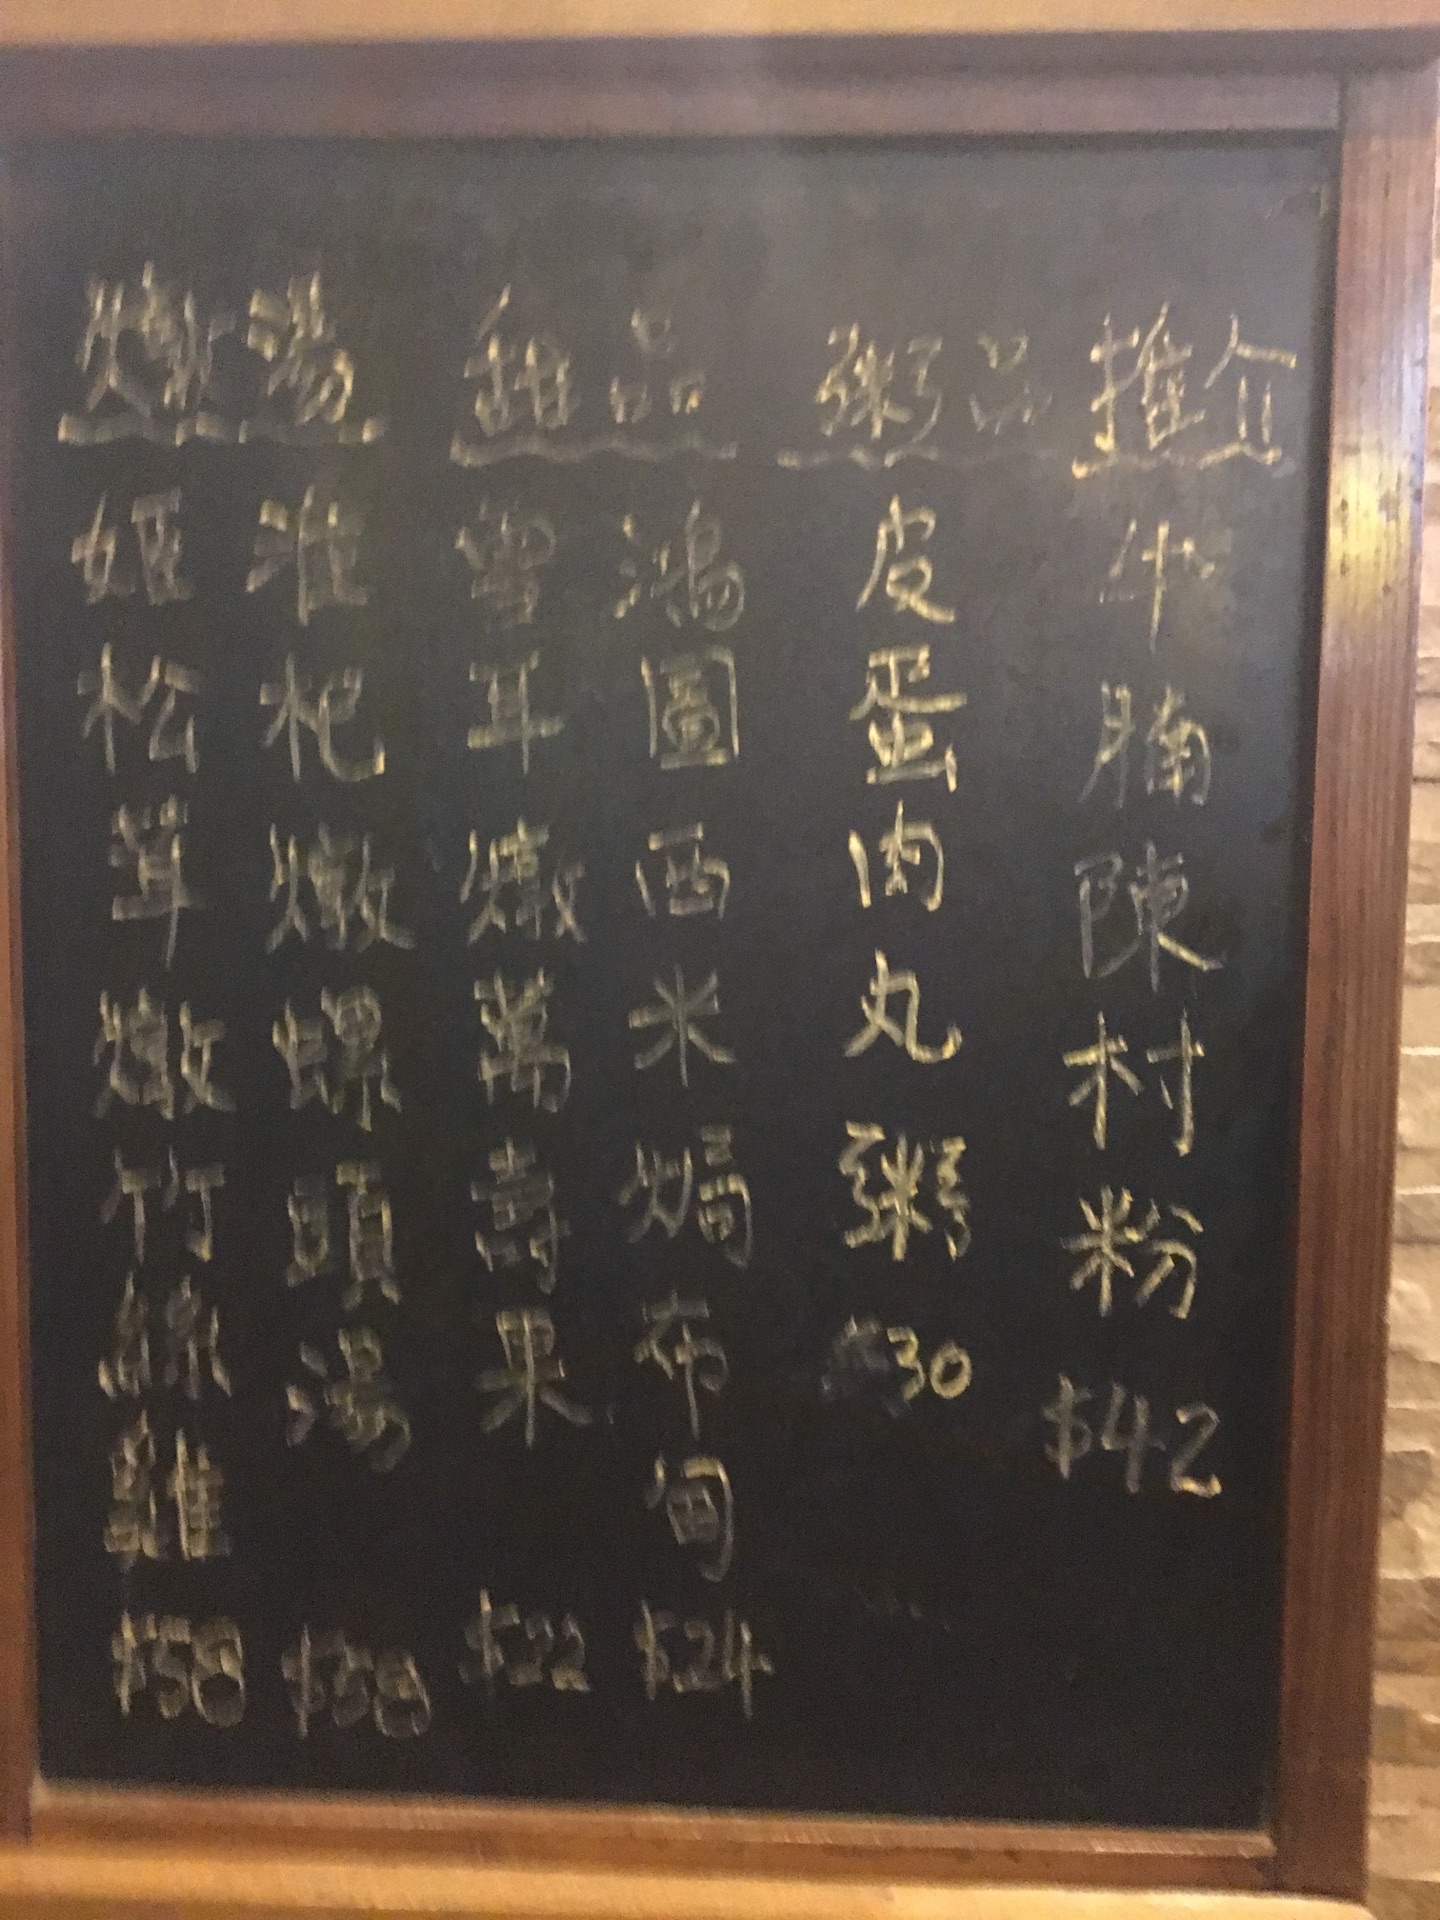 推介
牛腩陳村粉 $42
粥品
皮蛋肉丸粥 $30
甜品
鴻圖西米焗布甸 $24
雪耳燉萬壽果 $22
燉湯
淮杞燉螺頭湯 $58
姬松茸燉竹絲雞 $58